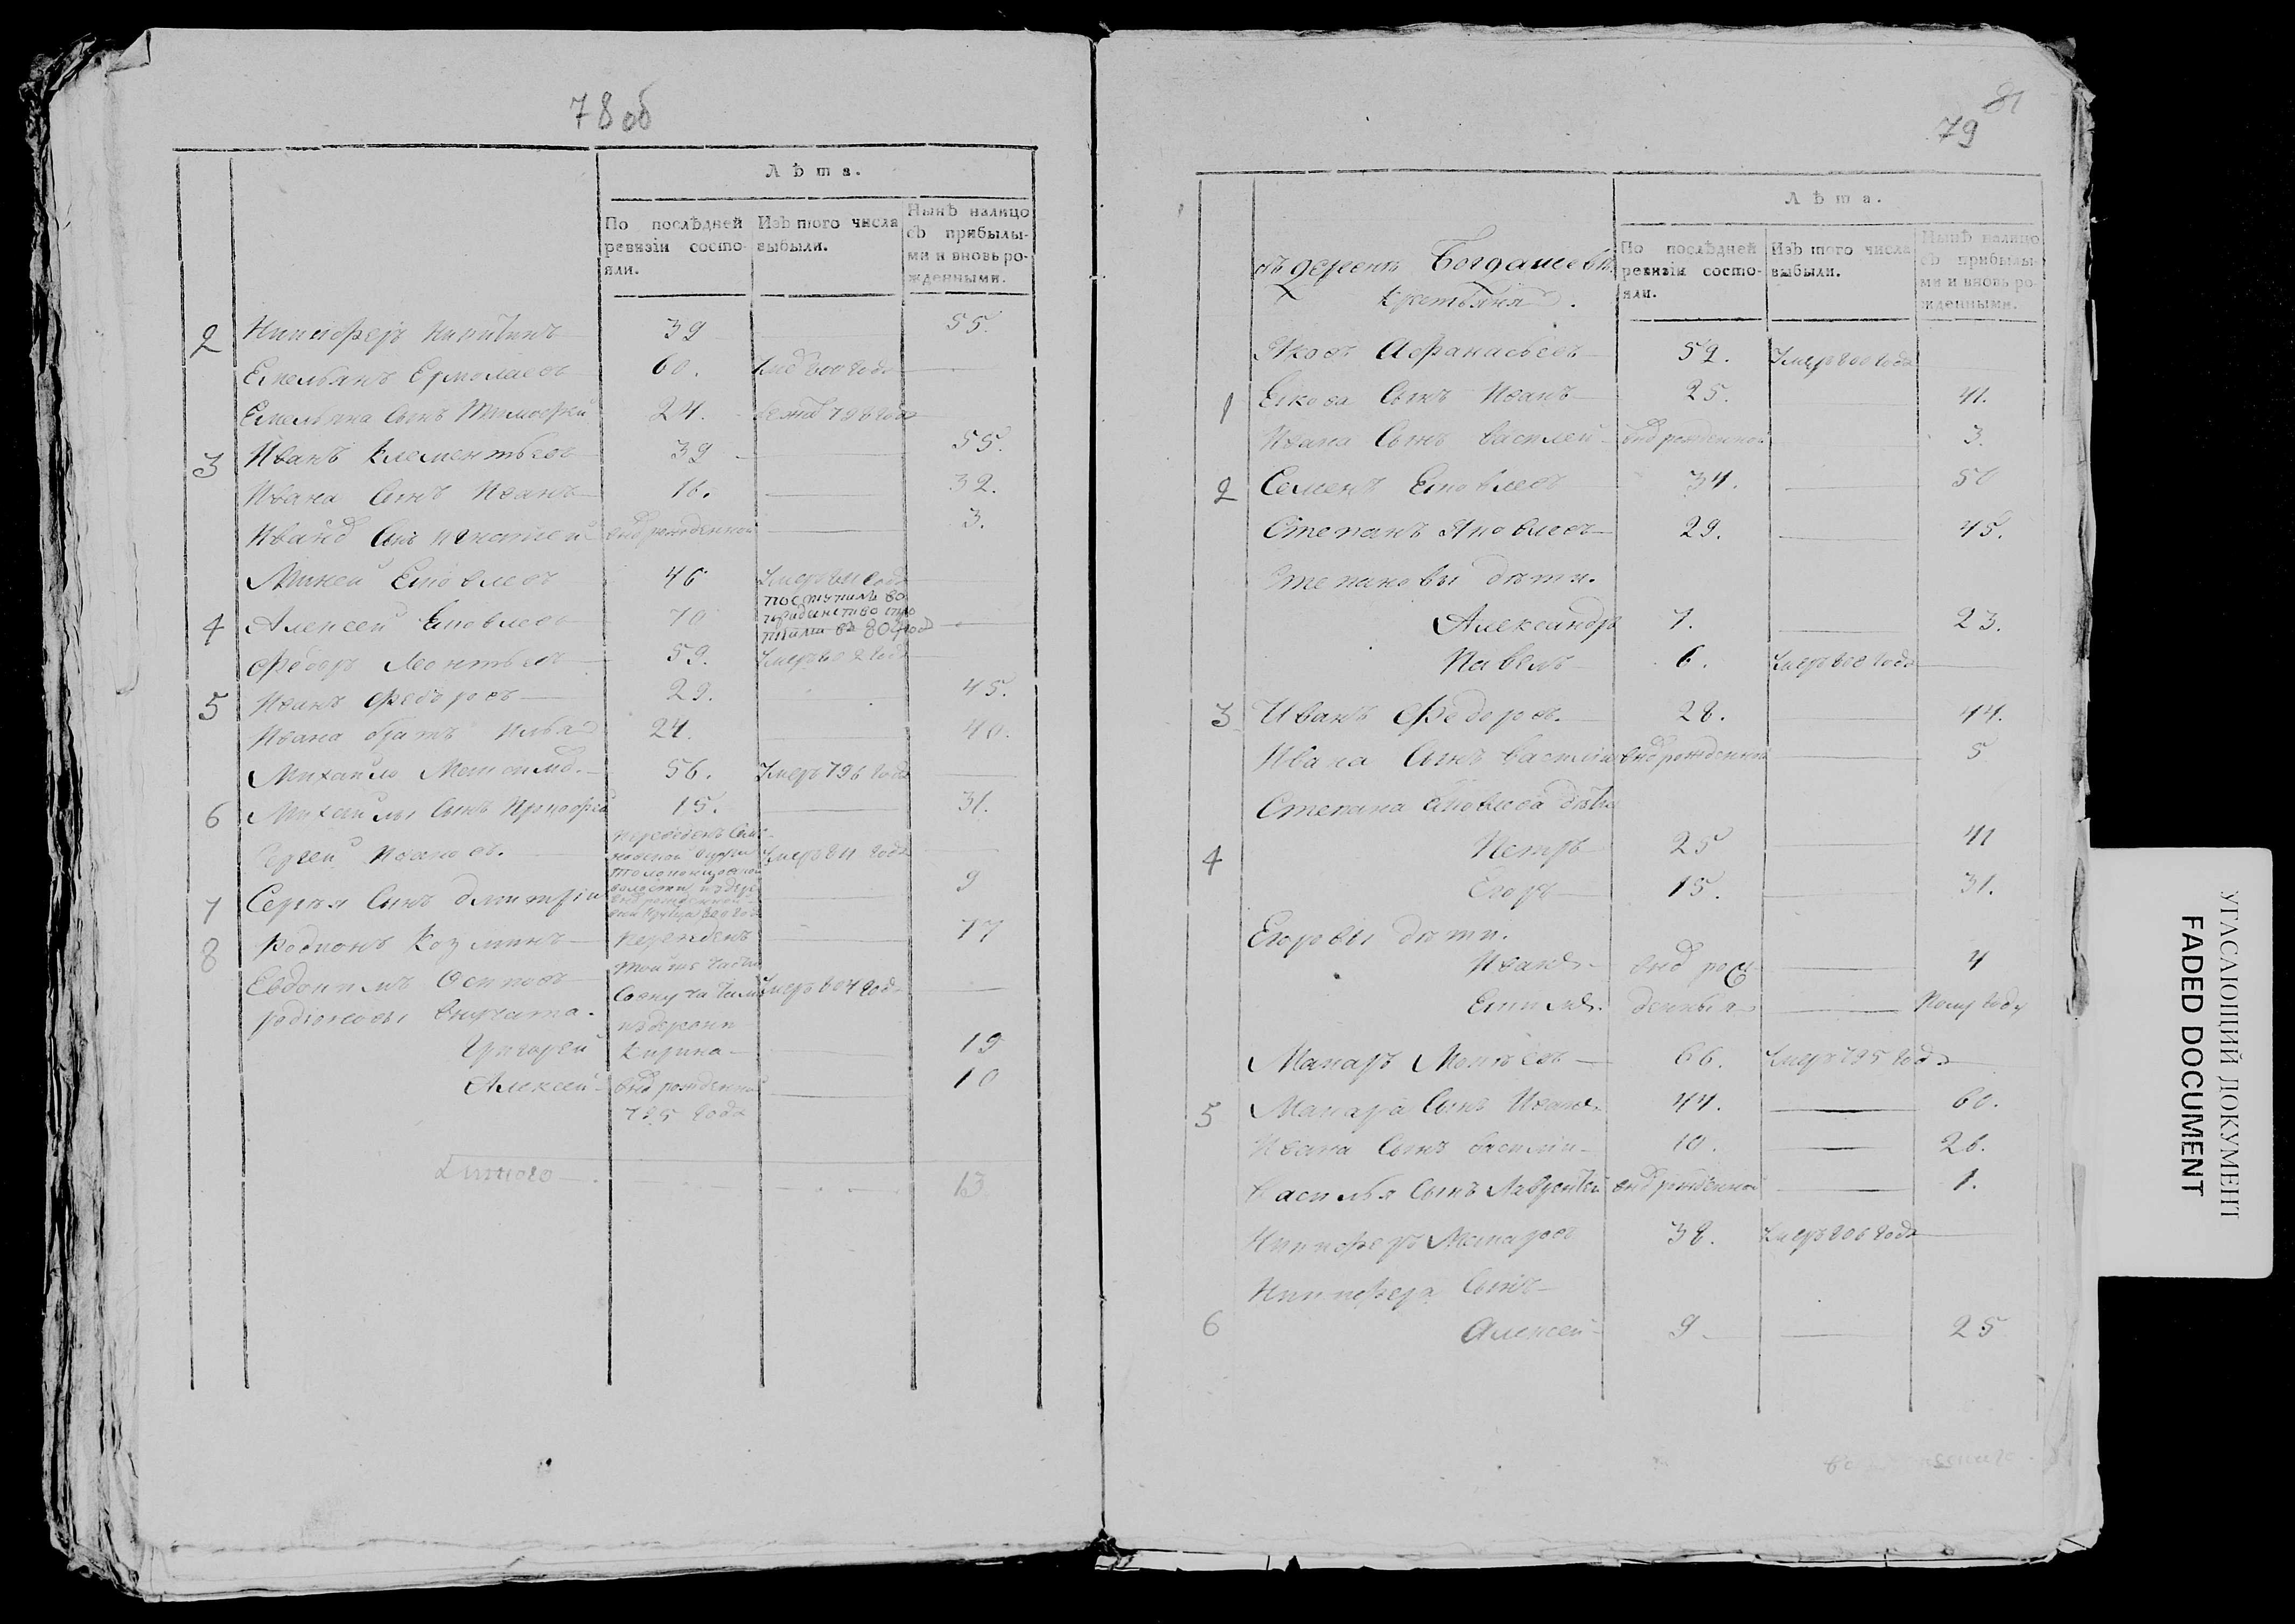 78 об
Лѣта.
По послѣдней ревизіи состояли.
Изъ того числа выбыли.
Нынѣ налицо съ прибылыми и вновь рожденными.
2 Никифоръ Никитинъ 39 55.
Емельянъ Ермолаевъ 60. 800 года
Емельяна сынъ Тимофей 24. 796 года
3 Иванъ Клементьевъ 39 55.
Ивана сынъ Иванъ 16. 32.
Ивана сынъ Игнатей внов рожденной 3.
Миней Ековлевъ 46 Умеръ 811 года
4 Алексей Ековлевъ 70 поступилъ во
в 804 год
Федоръ Леонтьевъ 59. Умеръ 802 года
5 Иванъ Федоровъ 29. 45.
Ивана братъ Илья 24. 40.
Михайло 56. Умеръ 796 года
6 Михайлы сынъ 15. 31.
Сергей Ивановъ. переведенъ Умеръ 811 года
7 Сергея сынъ Дмитрій 9
8 Родионъ Козминъ переведенъ 17
Евдокимъ Осиповъ той же части Умеръ 804 год
Родионовы внучата.
Григорей 19
Алексей внов рожденной 10
795 года
Итого 13
81
79
Лѣта.
въ деревнѣ Богдашевѣ
крестьяня.
По послѣдней ревизіи состояли.
Изъ того числа выбыли.
Нынѣ налицо съ прибылыми и вновь рожденными.
Яковъ Афанасьевъ 52. Умеръ 800 года
1 Екова сынъ Иванъ 25. 41.
Ивана сынъ Василей внов рожденной 3.
2 Семенъ Ековлевъ 34. 50
Степанъ Яковлевъ 29. 45.
Степановы дѣти.
Александръ 7. 23.
Павелъ 6. Умеръ 808 года
3 Иванъ Федоровъ. 28. 44.
Ивана сынъ Василей внов рожденной 5
Степана Ековлева дѣти
4 Петръ 25 41
Егоръ 15. 31.
Егоровы дѣти.
Иванъ внов рож 4
Ефимъ. денныя полу году
Макаръ 66. Умеръ 795 года
5 Макара сынъ Иванъ 44. 60.
Ивана сынъ Василей 10. 26.
Василья сынъ Лаврентей внов рожденной 1.
Никифоръ Макаровъ 38. Умеръ 806 года
Никифора сынъ
6 Алексей 9 25
УГАСАЮЩИЙ ДОКУМЕНТ
FADED DOCUMENT